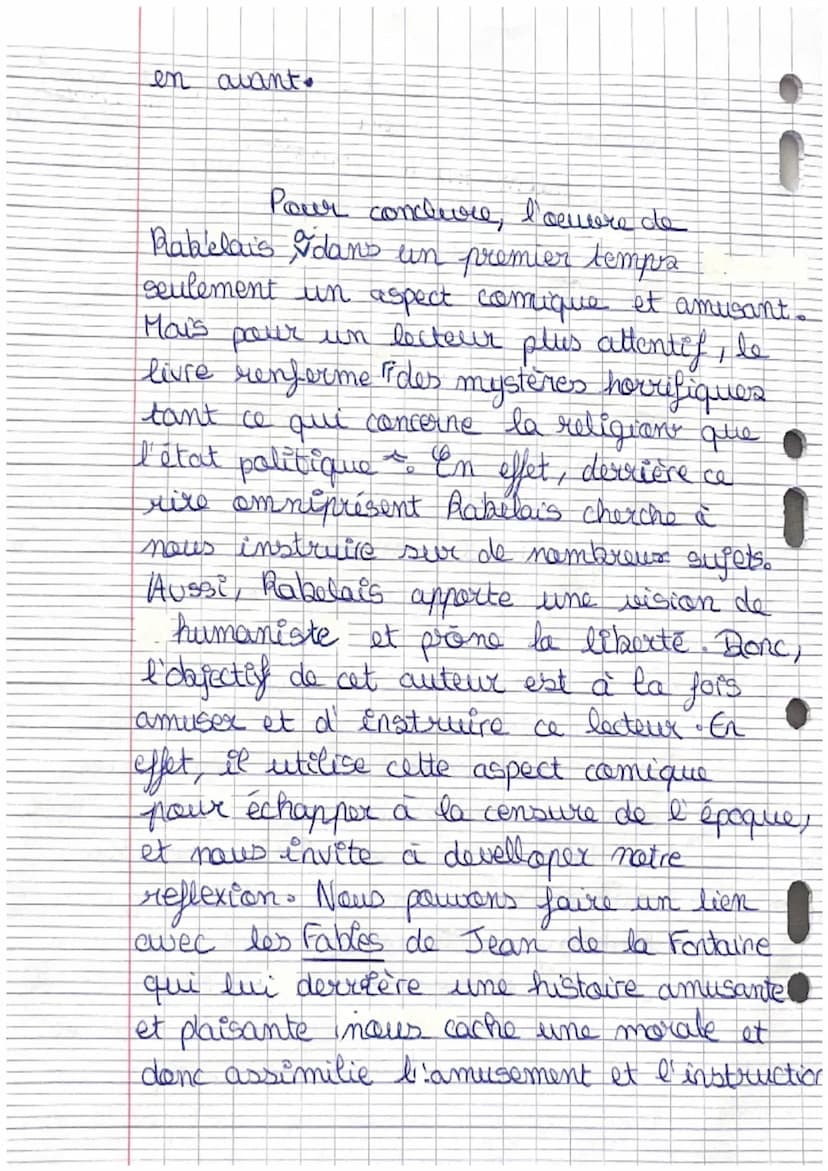 en avant.
Pour conclure, l'oeuvre de
Rabelais a dans un premier temps
seulement un aspect comique et amusant.
Mais pour un lecteur plus attentif, le
livre renferme "des mystères horrifiques
tant ce qui concerne la religion que
l'état politique ". En effet, derrière ce
rire omniprésent Rabelais cherche à
nous instruire sur de nombreux sujets.
Aussi, Rabelais apporte une vision de
humaniste et prône la liberté. Donc,
l'objectif de cet auteur est à la fois
amuser et d'instruire ce lecteur. En
effet, il utilise cette aspect comique
pour échapper à la censure de l'époque,
et nous invite à develloper notre
reflexion. Nous pouvons faire un lien
avec les Fables de Jean de la Fontaine
qui lui derrière une histoire amusante
et plaisante nous cache une morale et
donc assimilie l'amusement et l'instruction